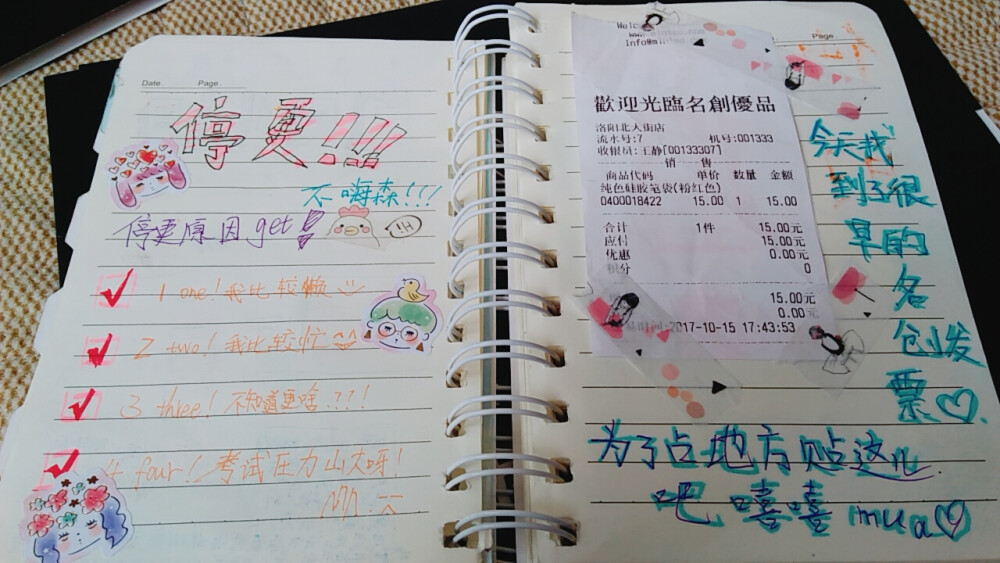 Date. Page
停更!!!
不嗨森!!!
停更原因get!
Hi!
1 one!我比较懒
2 two!我比较忙^^
3 three!不知道更啥??!
4 four!考试压力山大呀!
Page
歡迎光臨名創優品
洛阳北大街店
流水号:7 机号:001333
收银员:王静[00133307]
销 售
商品代码 单价 数量 金额
纯色硅胶笔袋(粉红色)
0400018422 15.00 1 15.00
合计 1件 15.00元
应付 15.00元
优惠 0.00元
积分 0
15.00元
0.00元
2017-10-15 17:43:53
今天我
到了很
早的
名
创发
票♡.
为了占地方贴这儿
吧嘻嘻mua♡